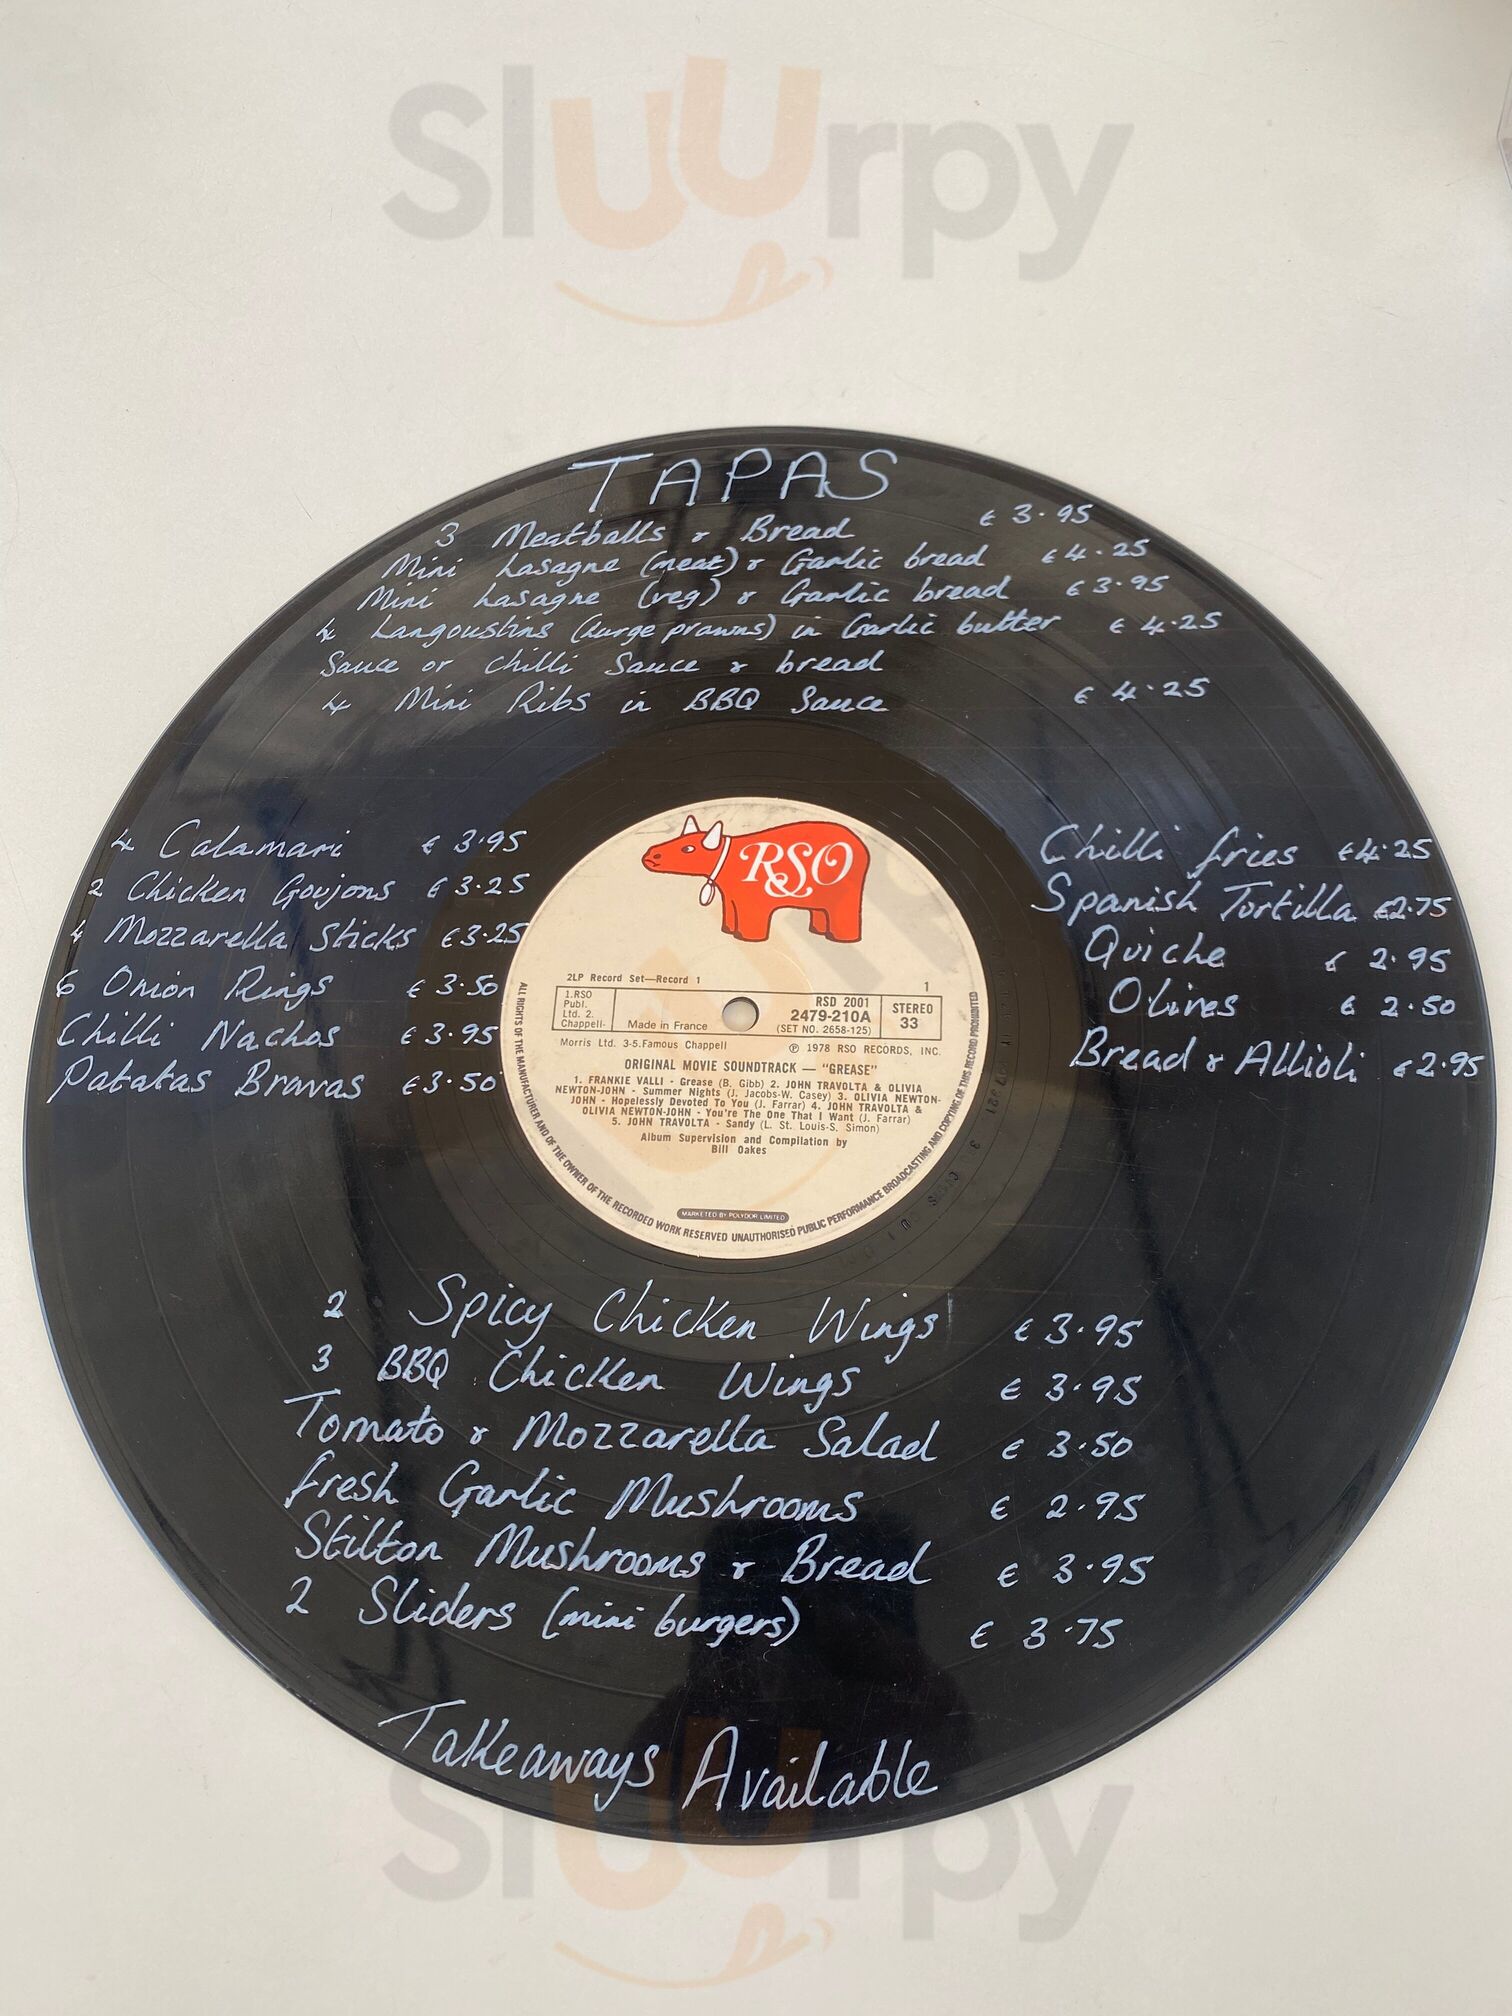 Sluurpy
TAPAS
3 Meatballs & Bread € 3.95
Mini Lasagne (meat) & Garlic bread € 4.25
Mini Lasagne (veg) & Garlic bread € 3.95
4 Langoustins (large prawns) in Garlic butter € 4.25
Sauce or chilli Sauce & bread
4 Mini Ribs in BBQ Sauce € 4.25
4 Calamari € 3.95
2 Chicken Goujons € 3.25
4 Mozzarella Sticks € 3.25
6 Onion Rings € 3.50
Chilli Nachos € 3.95
Patatas Bravas € 3.50
Chilli fries € 4.25
Spanish Tortilla €2.75
Quiche € 2.95
Olives € 2.50
Bread & Allioli € 2.95
RSO
2LP Record Set—Record 1
1
1.RSO
Publ.
Ltd. 2.
Chappell-
Made in France
RSD 2001
2479-210A
(SET NO. 2658-125)
STEREO
33
Morris Ltd. 3-5.Famous Chappell
℗ 1978 RSO RECORDS, INC.
ORIGINAL MOVIE SOUNDTRACK — "GREASE"
1. FRANKIE VALLI - Grease (B. Gibb) 2. JOHN TRAVOLTA & OLIVIA
NEWTON-JOHN - Summer Nights (J. Jacobs-W. Casey) 3. OLIVIA NEWTON-
JOHN - Hopelessly Devoted To You (J. Farrar) 4. JOHN TRAVOLTA &
OLIVIA NEWTON-JOHN - You're The One That I Want (J. Farrar)
5. JOHN TRAVOLTA - Sandy (L. St. Louis-S. Simon)
Album Supervision and Compilation by
Bill Oakes
MARKETED BY POLYDOR LIMITED
ALL RIGHTS OF THE MANUFACTURER AND OF THE OWNER OF THE RECORDED WORK RESERVED UNAUTHORISED PUBLIC PERFORMANCE BROADCASTING AND COPYING OF THIS RECORD PROHIBITED
2 Spicy Chicken Wings € 3.95
3 BBQ Chicken Wings € 3.95
Tomato & Mozzarella Salad € 3.50
fresh Garlic Mushrooms € 2.95
Stilton Mushrooms & Bread € 3.95
2 Sliders (mini burgers) € 3.75
Takeaways Available
Sluurpy